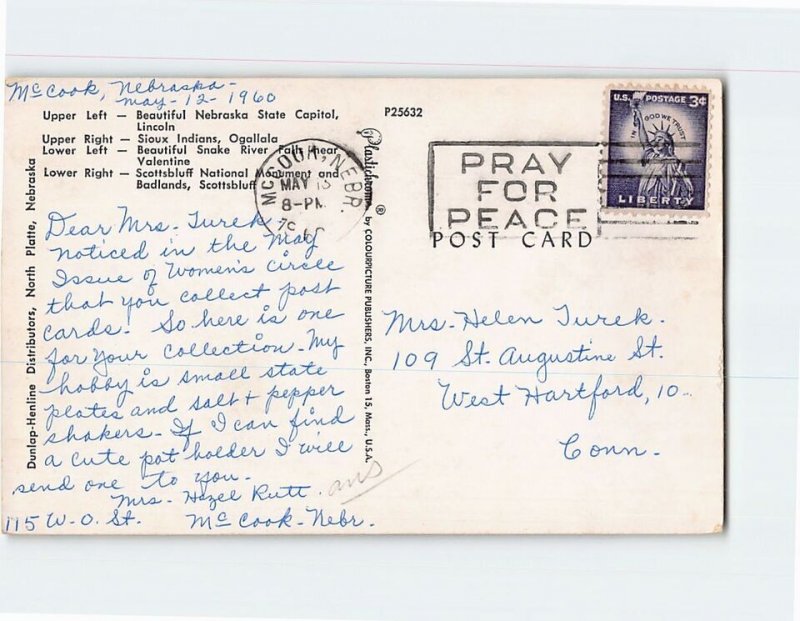 McCook, Nebraska-
May-12-1960
Upper Left — Beautiful Nebraska State Capitol,
Lincoln
Upper Right — Sioux Indians, Ogallala
Lower Left — Beautiful Snake River Falls near
Valentine
Lower Right — Scottsbluff National Monument and
Badlands, Scottsbluff
Dear Mrs. Turek,
noticed in the May
Issue of Women's Circle
that you collect post
cards. So here is one
for your collection. My
hobby is small state
plates and salt + pepper
shakers. If I can find
a cute pot holder I will
send one to you.
Mrs. Hazel Rutt.
115 W-O. St. McCook-Nebr.
ans
Dunlap-Henline Distributors, North Platte, Nebraska
Plastichrome ® by COLOURPICTURE PUBLISHERS, INC., Boston 15, Mass., U.S.A.
P25632
McCOOK, NEBR.
MAY 13
8-PM
PRAY
FOR
PEACE
POST CARD
U.S. POSTAGE 3¢
IN GOD WE TRUST
LIBERTY
Mrs. Helen Turek.
109 St. Augustine St.
West Hartford, 10-
Conn.